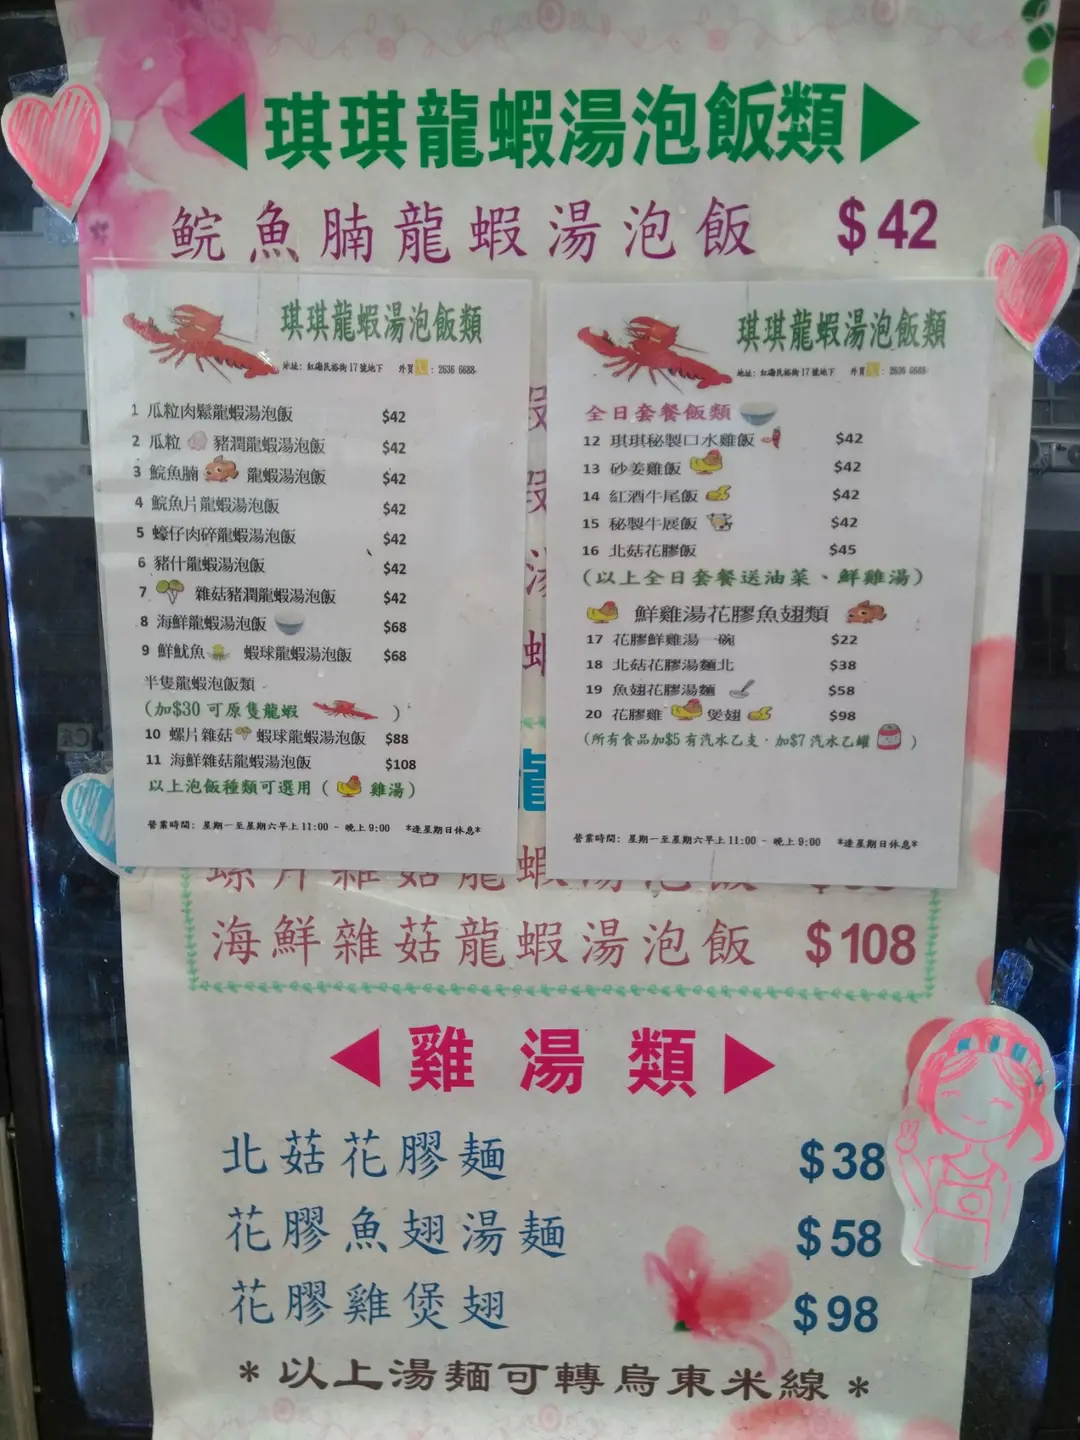 琪琪龍蝦湯泡飯類
鯇魚腩龍蝦湯泡飯 $42
琪琪龍蝦湯泡飯類
地址: 紅磡民裕街17號地下 外賣 : 2636 6688
1 瓜粒肉鬆龍蝦湯泡飯 $42
2 瓜粒 豬潤龍蝦湯泡飯 $42
3 鯇魚腩 龍蝦湯泡飯 $42
4 鯇魚片龍蝦湯泡飯 $42
5 蠔仔肉碎龍蝦湯泡飯 $42
6 豬什龍蝦湯泡飯 $42
7 雜菇豬潤龍蝦湯泡飯 $42
8 海鮮龍蝦湯泡飯 $68
9 鮮魷魚 蝦球龍蝦湯泡飯 $68
半隻龍蝦泡飯類
(加$30 可原隻龍蝦 )
10 螺片雜菇 蝦球龍蝦湯泡飯 $88
11 海鮮雜菇龍蝦湯泡飯 $108
以上泡飯種類可選用 ( 雞湯)
營業時間: 星期一至星期六早上 11:00 - 晚上 9:00 *逢星期日休息*
琪琪龍蝦湯泡飯類
地址: 紅磡民裕街17號地下 外賣 : 2636 6688
全日套餐飯類
12 琪琪秘製口水雞飯 $42
13 砂姜雞飯 $42
14 紅酒牛尾飯 $42
15 秘製牛展飯 $42
16 北菇花膠飯 $45
(以上全日套餐送油菜、鮮雞湯)
鮮雞湯花膠魚翅類
17 花膠鮮雞湯一碗 $22
18 北菇花膠湯麵北 $38
19 魚翅花膠湯麵 $58
20 花膠雞 煲翅 $98
(所有食品加$5 有汽水乙支‧加$7 汽水乙罐 )
營業時間: 星期一至星期六早上 11:00 - 晚上 9:00 *逢星期日休息*
螺片雜菇龍蝦湯泡飯
海鮮雜菇龍蝦湯泡飯 $108
雞湯類
北菇花膠麵 $38
花膠魚翅湯麵 $58
花膠雞煲翅 $98
*以上湯麵可轉烏東米線*